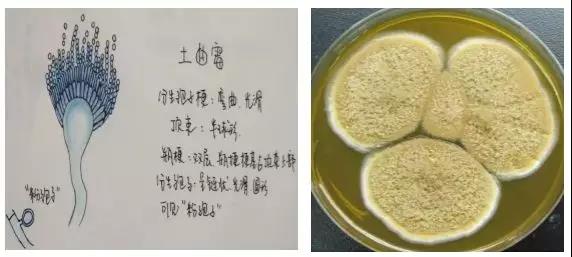 土曲霉
分生孢子梗：弯曲、光滑
顶囊：半球形
瓶梗：双层、瓶梗梗基占顶囊上部
分生孢子：呈链状、光滑圆形
可见"粉孢子"
"粉孢子"